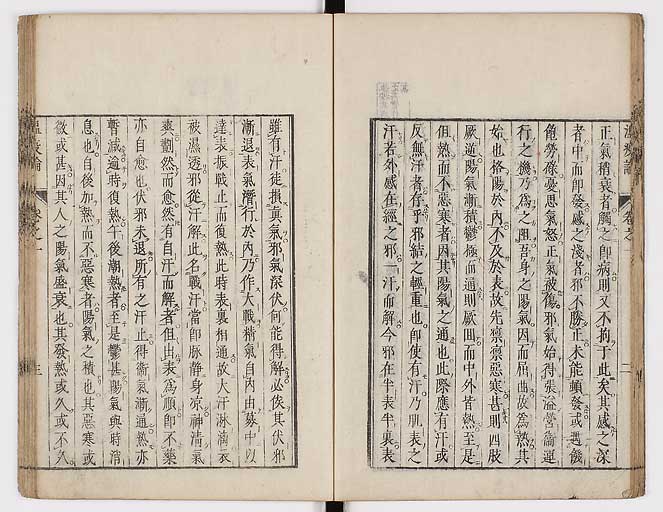 正氣稍衰者觸之即病則又不拘于此矣其感之深
者中而即發感之淺者邪不勝正未能頓發或遇饑
飽勞碌憂思氣怒正氣被傷邪氣始得張溢營衛運
行之機乃為之阻吾身之陽氣因而屈曲故為熱其
始也格陽於內不及於表故先凛凛惡寒甚則四肢
厥逆陽氣漸積鬱極而通則厥回而中外皆熱至是
但熱而不惡寒者因其陽氣之通也此際應有汗或
反無汗者存乎邪結之輕重也即使有汗乃肌表之
汗若外感在經之邪一汗而解今邪在半表半裏表
雖有汗徒損真氣邪氣深伏何能得解必俟其伏邪
漸退表氣潛行於內乃作大戰精氣自內由募中以
達表振戰止而復熱此時表裏相通故大汗淋漓衣
被濕透邪從汗解此名戰汗當即脉靜身凉神清氣
爽劃然而愈然有自汗而解者但出表為順即不藥
亦自愈也伏邪未退所有之汗止得衛氣漸通熱亦
暫減逾時復熱午後潮熱者至是鬱甚陽氣與時消
息也自後加熱而不惡寒者陽氣之積也其惡寒或
微或甚因其人之陽氣盛衰也其發熱或久或不久